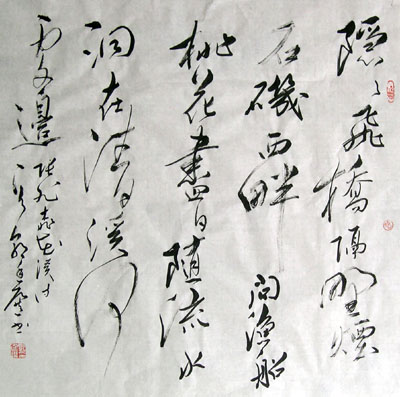 隱〻飛橋隔野煙
石磯西畔問漁船
桃花盡日隨流水
洞在清溪何
處邊 張旭桃花溪詩